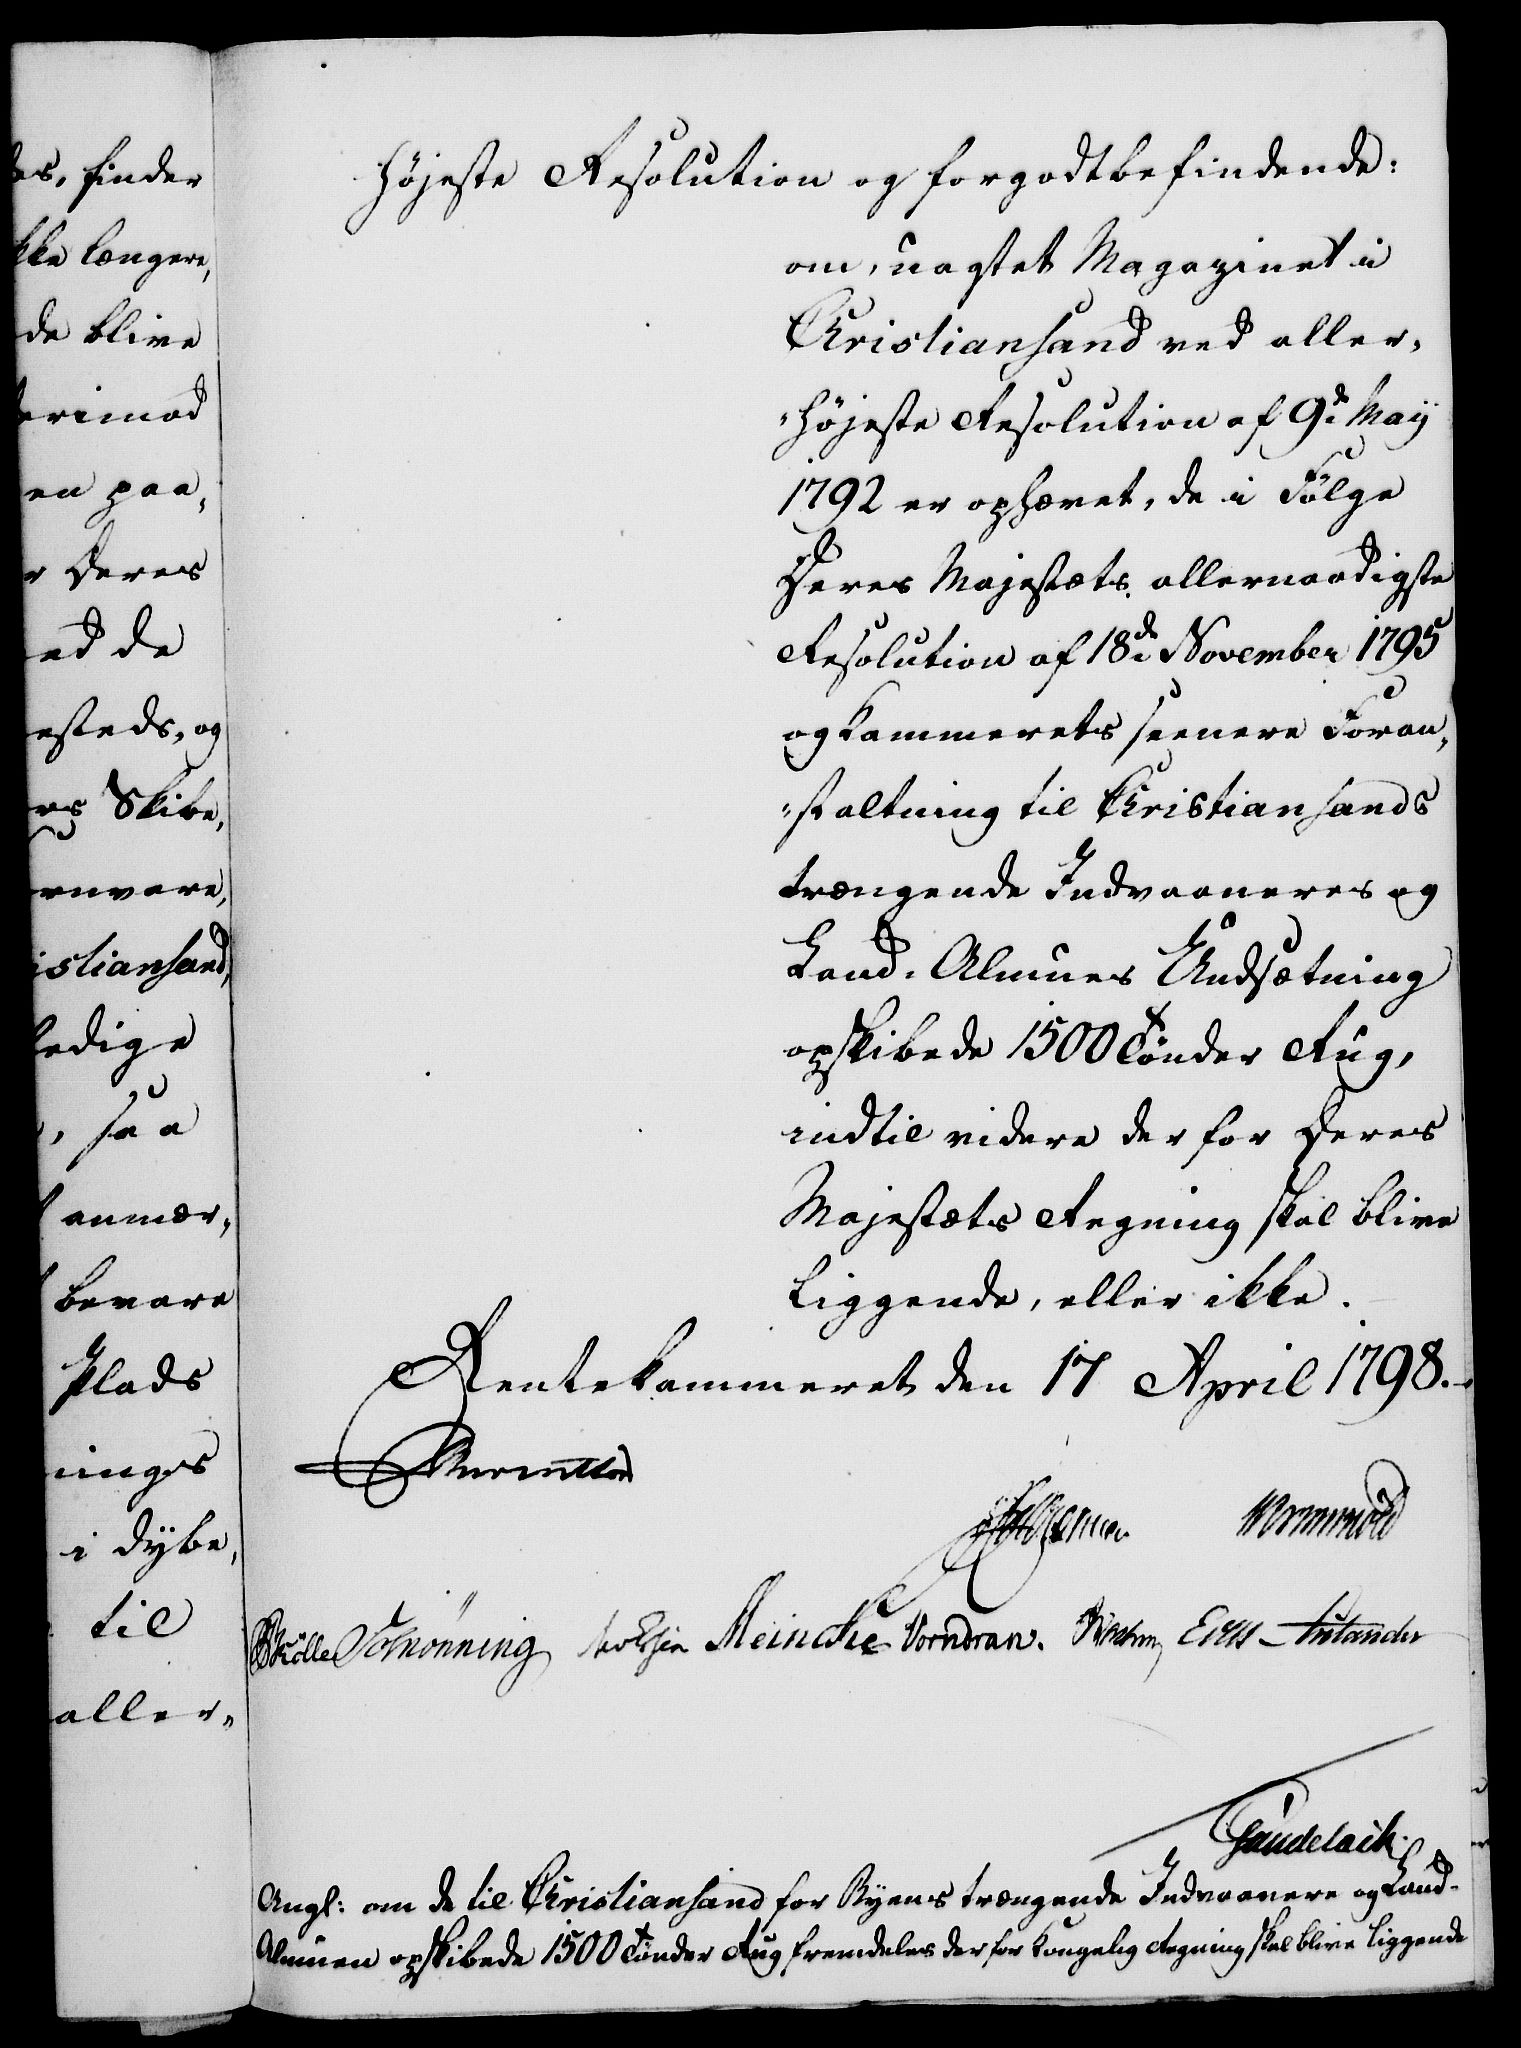 es, finder
kke længere,
de blive
erimod
en paa,
r Deres
ed de
esteds, og
es Skibe,
ornvare,
istiansand,
ledige
, saa
anmær„
bevare
Plads
ninges
i Dybe,
til
aller„
højeste Resolution og forgodtbefindende:
om, uagtet Magazinet i
Christiansand ved aller„
„højeste Resolution af 9de May
1792 er ophævet, de i Følge
Deres Majestæts allernaadigste
Resolution af 18de November 1795
og Kammerets seenere Foran„
„staltning til Christiansands
trængende Indvaaneres og
Land-Almues Undsætning
opskibede 1500 Tönder Rug,
indtil videre der for Deres
Majestæts Regning skal blive
liggende, eller ikke.
Rentekammeret den 17 April 1798.
Wormskiold
Schönning Meincke Vorndran.
Angl: om de til Christiansand for Byens trængende Indvaanere og Land-
Almuen opskibede 1500 Tönder Rug fremdeles der for Kongelig Regning skal blive liggende